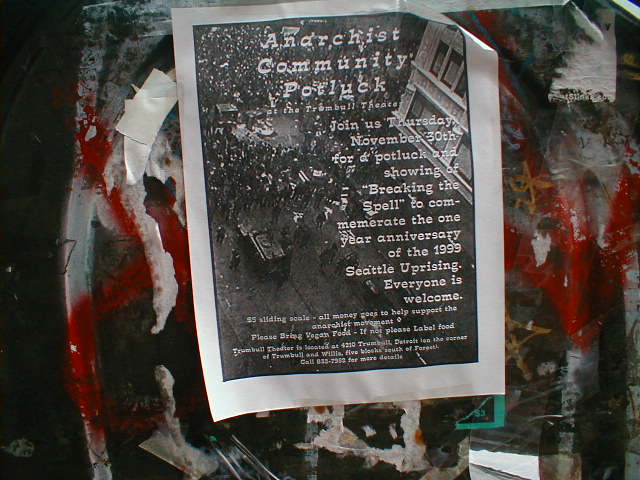 Anarchist
Community
Potluck
at the Trumbull Theater
Join us Thursday,
November 30th
for a potluck and
showing of
"Breaking the
Spell" to com-
memerate the one
year anniversary
of the 1999
Seattle Uprising.
Everyone is
welcome.
$5 sliding scale - all money goes to help support the
anarchist movement
Please Bring Vegan Food - If not please Label food
Trumbull Theater is located at 4210 Trumbull, Detroit (on the corner
of Trumbull and Willis, five blocks south of Forest).
Call 832-7952 for more details